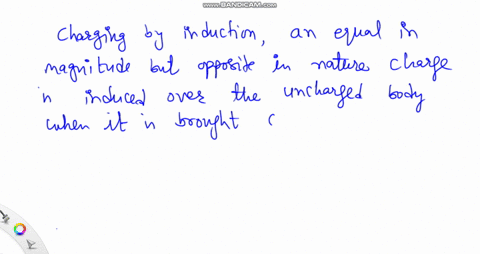 www.BANDICAM.com
Charging by induction, an equal in
magnitude but opposite in nature charge
in induced over the uncharged body
when it in brought c